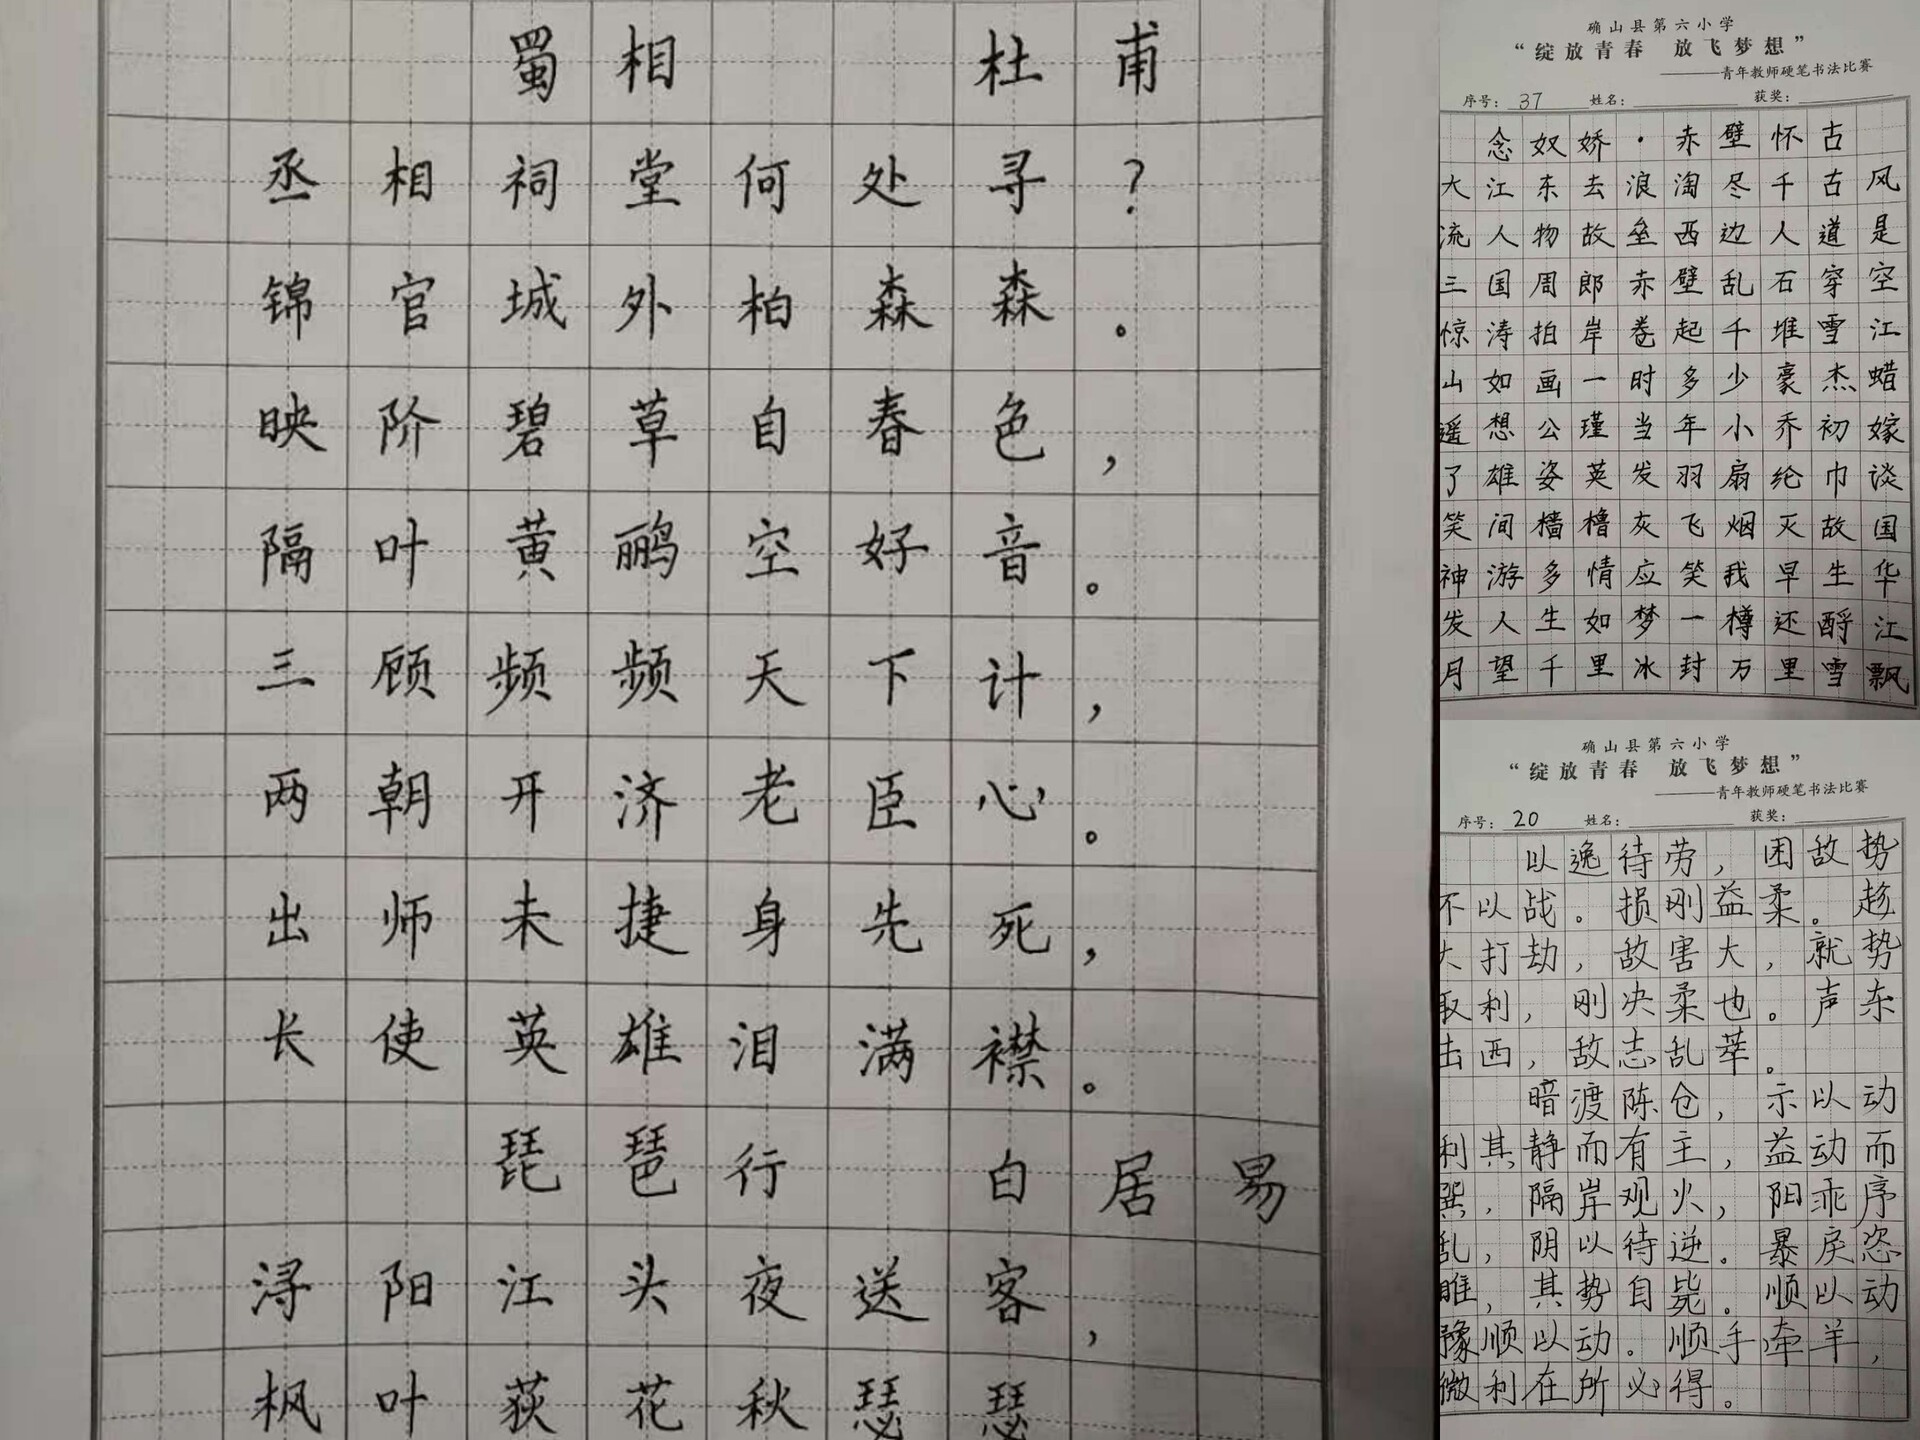 蜀相 杜甫
丞相祠堂何处寻?
锦官城外柏森森。
映阶碧草自春色,
隔叶黄鹂空好音。
三顾频频天下计,
两朝开济老臣心。
出师未捷身先死,
长使英雄泪满襟。
琵琶行 白居易
浔阳江头夜送客,
枫叶荻花秋瑟瑟
确山县第六小学
“绽放青春 放飞梦想”
————青年教师硬笔书法比赛
序号: 37 姓名: 获奖:
念奴娇·赤壁怀古
大江东去浪淘尽千古风
流人物故垒西边人道是
三国周郎赤壁乱石穿空
惊涛拍岸卷起千堆雪江
山如画一时多少豪杰蜡
遥想公瑾当年小乔初嫁
了雄姿英发羽扇纶巾谈
笑间樯橹灰飞烟灭故国
神游多情应笑我早生华
发人生如梦一樽还酹江
月望千里冰封万里雪飘
确山县第六小学
“绽放青春 放飞梦想”
————青年教师硬笔书法比赛
序号: 20 姓名: 获奖:
以逸待劳,困敌势
不以战。损刚益柔。趁
火打劫,敌害大,就势
取利,刚决柔也。声东
击西,敌志乱萃。
暗渡陈仓,示以动
利其静而有主,益动而
巽,隔岸观火,阳乖序
乱,阴以待逆。暴戾恣
睢,其势自毙。顺以动
豫顺以动。顺手牵羊,
微利在所必得。